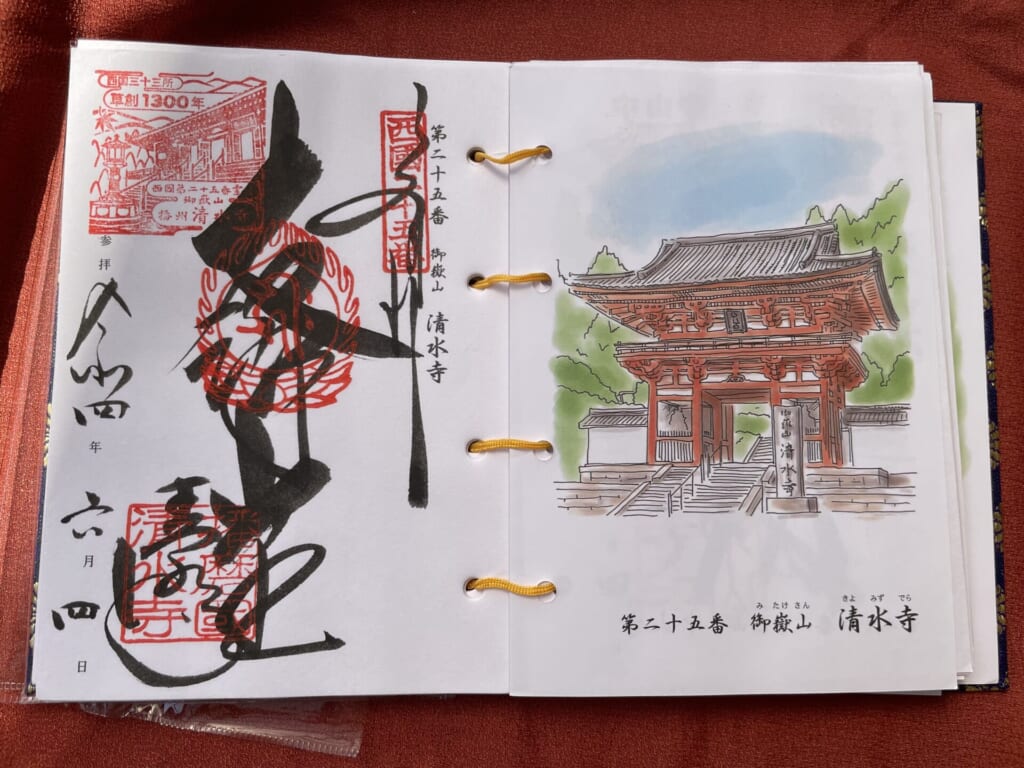 西国三十三所
草創1300年
西國第二十五番
御嶽山
播州 清水寺
第二十五番 御嶽山 清水寺
西國二十五番
播磨國
清水寺
参拝 令和四年 六月 四日
御嶽山 清水寺
第二十五番 御嶽山 清水寺
みたけさん きよみずでら